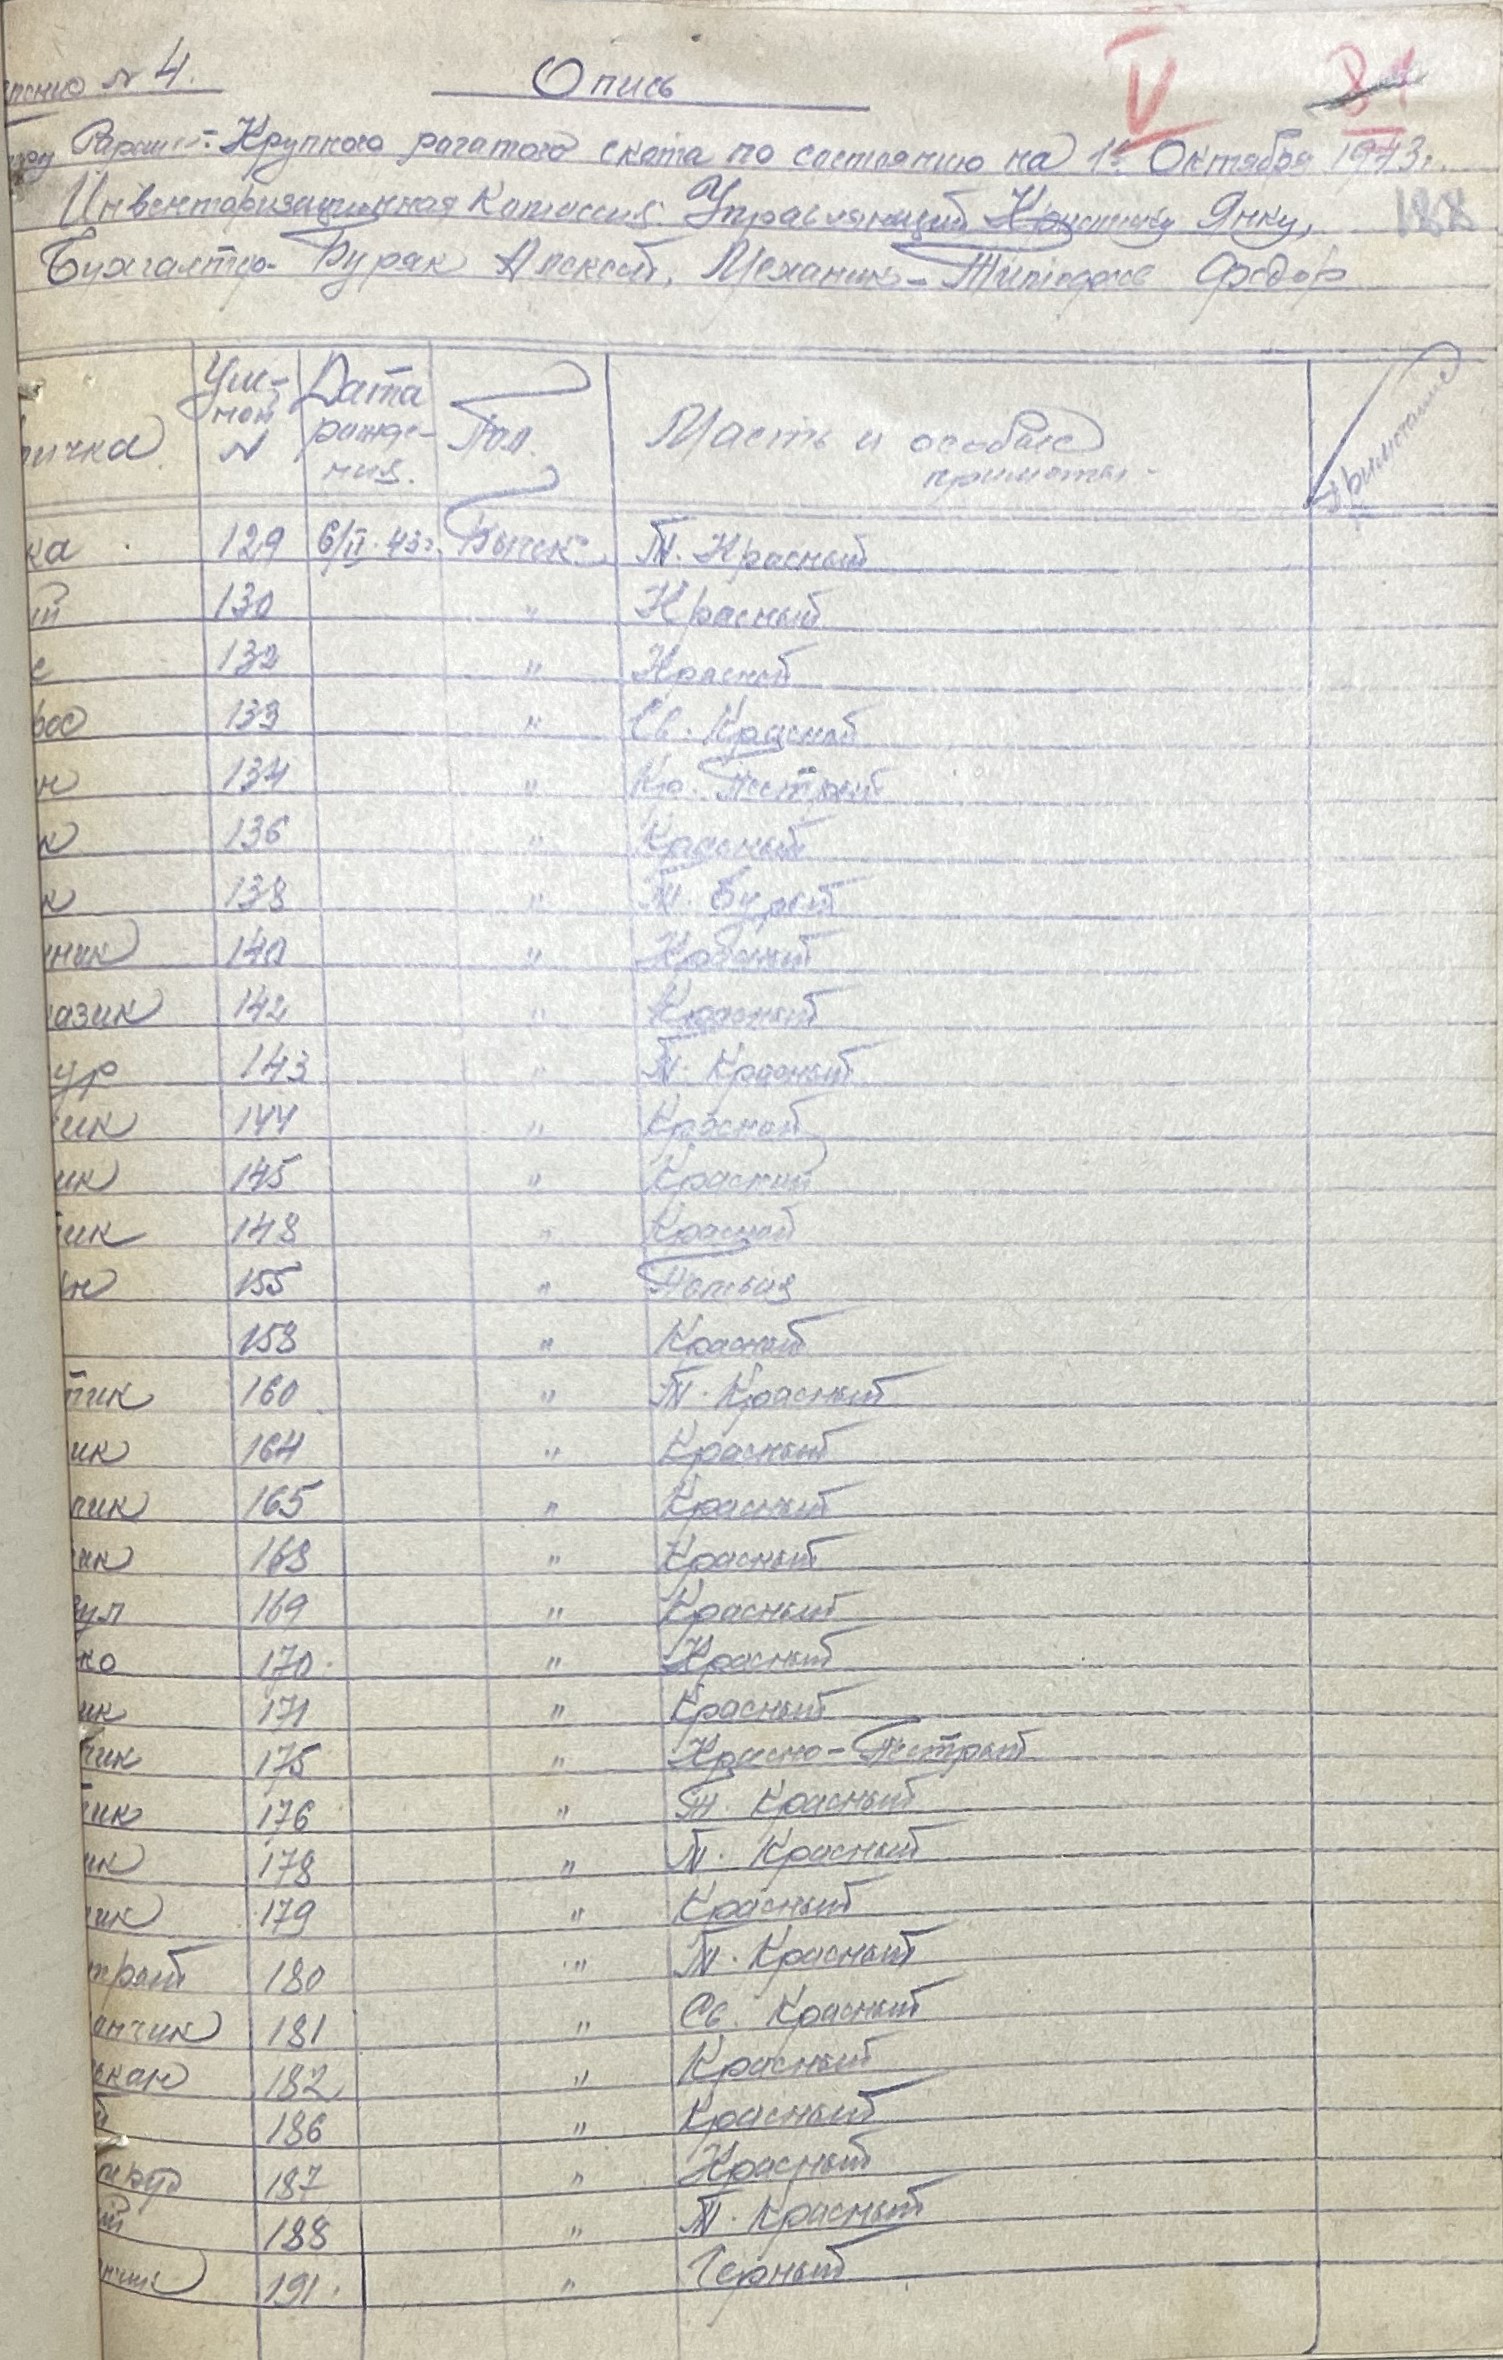 N 4.
Опись
V
81
Крупного рогатого скота по состоянию на 1е Октября 1943г.
Инвентаризационная Комиссия: Управляющий Янку,
188
Бухгалтер- Буряк Алексей, Механик- Федор
ичка
Уш-ной N
Дата рожде-ния.
Пол.
Масть и особые приметы-
Примечание
ка 129 6/II-43г. Бычек Т. Красный
ый 130 " Красный
с 132 " Красной
рос 133 " Св. Красной
н 134 " Кр. Пестрый
к 136 " Красный
к 138 " Т. Бурый
ник 140 " Красный
газик 142 " Красный
ур 143 " Т. Красный
чик 144 " Красной
ик 145 " Красный
чик 148 " Красной
ан 155 "
158 " Красный
тик 160 " Т. Красный
ик 164 " Красный
пик 165 " Красный
ик 168 " Красный
зул 169 " Красный
ко 170 " Красный
ик 171 " Красный
чик 175 " Красно-Пестрый
ик 176 " Т. Красный
ик 178 " Т. Красный
ик 179 " Красный
трый 180 " Т. Красный
анчик 181 " Св. Красный
кан 182 " Красный
й 186 " Красный
187 " Красный
ый 188 " Т. Красный
нчик 191 " Черный